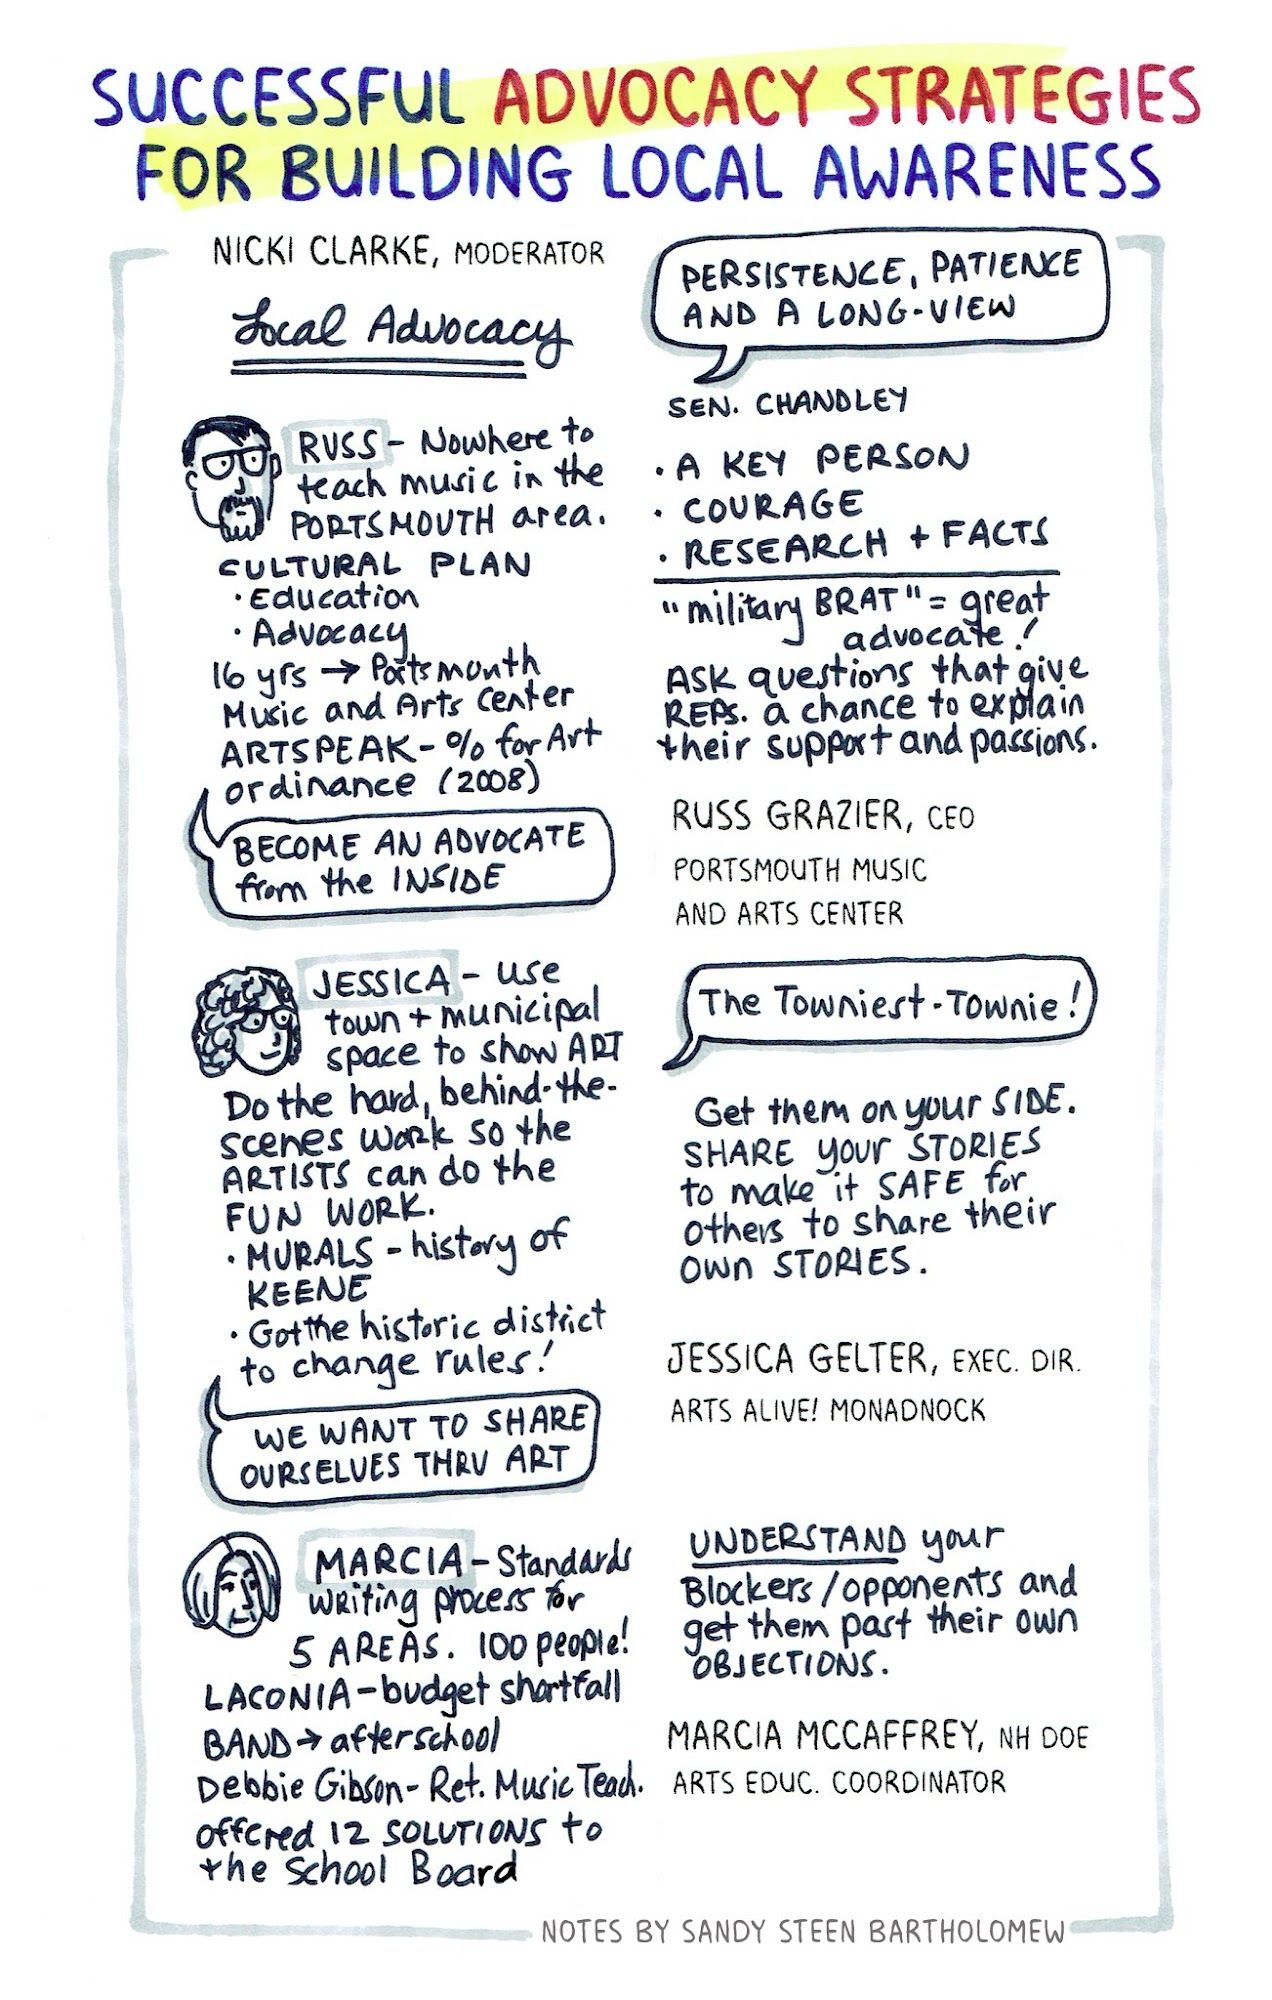 SUCCESSFUL ADVOCACY STRATEGIES
FOR BUILDING LOCAL AWARENESS
NICKI CLARKE, MODERATOR
Local Advocacy
RUSS - Nowhere to
teach music in the
PORTSMOUTH area.
CULTURAL PLAN
• Education
• Advocacy
16 yrs → Portsmouth
Music and Arts Center
ARTSPEAK - % for Art
ordinance (2008)
BECOME AN ADVOCATE
from the INSIDE
PERSISTENCE, PATIENCE
AND A LONG-VIEW
SEN. CHANDLEY
• A KEY PERSON
• COURAGE
• RESEARCH + FACTS
"military BRAT" = great
advocate!
ASK questions that give
REPs. a chance to explain
their support and passions.
RUSS GRAZIER, CEO
PORTSMOUTH MUSIC
AND ARTS CENTER
JESSICA - use
town + municipal
space to show ART
Do the hard, behind-the-
scenes work so the
ARTISTS can do the
FUN WORK.
• MURALS - history of
KEENE
• Got the historic district
to change rules!
WE WANT TO SHARE
OURSELVES THRU ART
The Towniest-Townie!
Get them on your SIDE.
SHARE your STORIES
to make it SAFE for
others to share their
own STORIES.
JESSICA GELTER, EXEC. DIR.
ARTS ALIVE! MONADNOCK
MARCIA - Standards
writing process for
5 AREAS. 100 people!
LACONIA - budget shortfall
BAND → afterschool
Debbie Gibson - Ret. Music Teach.
offered 12 SOLUTIONS to
the School Board
UNDERSTAND your
Blockers/opponents and
get them past their own
OBJECTIONS.
MARCIA MCCAFFREY, NH DOE
ARTS EDUC. COORDINATOR
NOTES BY SANDY STEEN BARTHOLOMEW